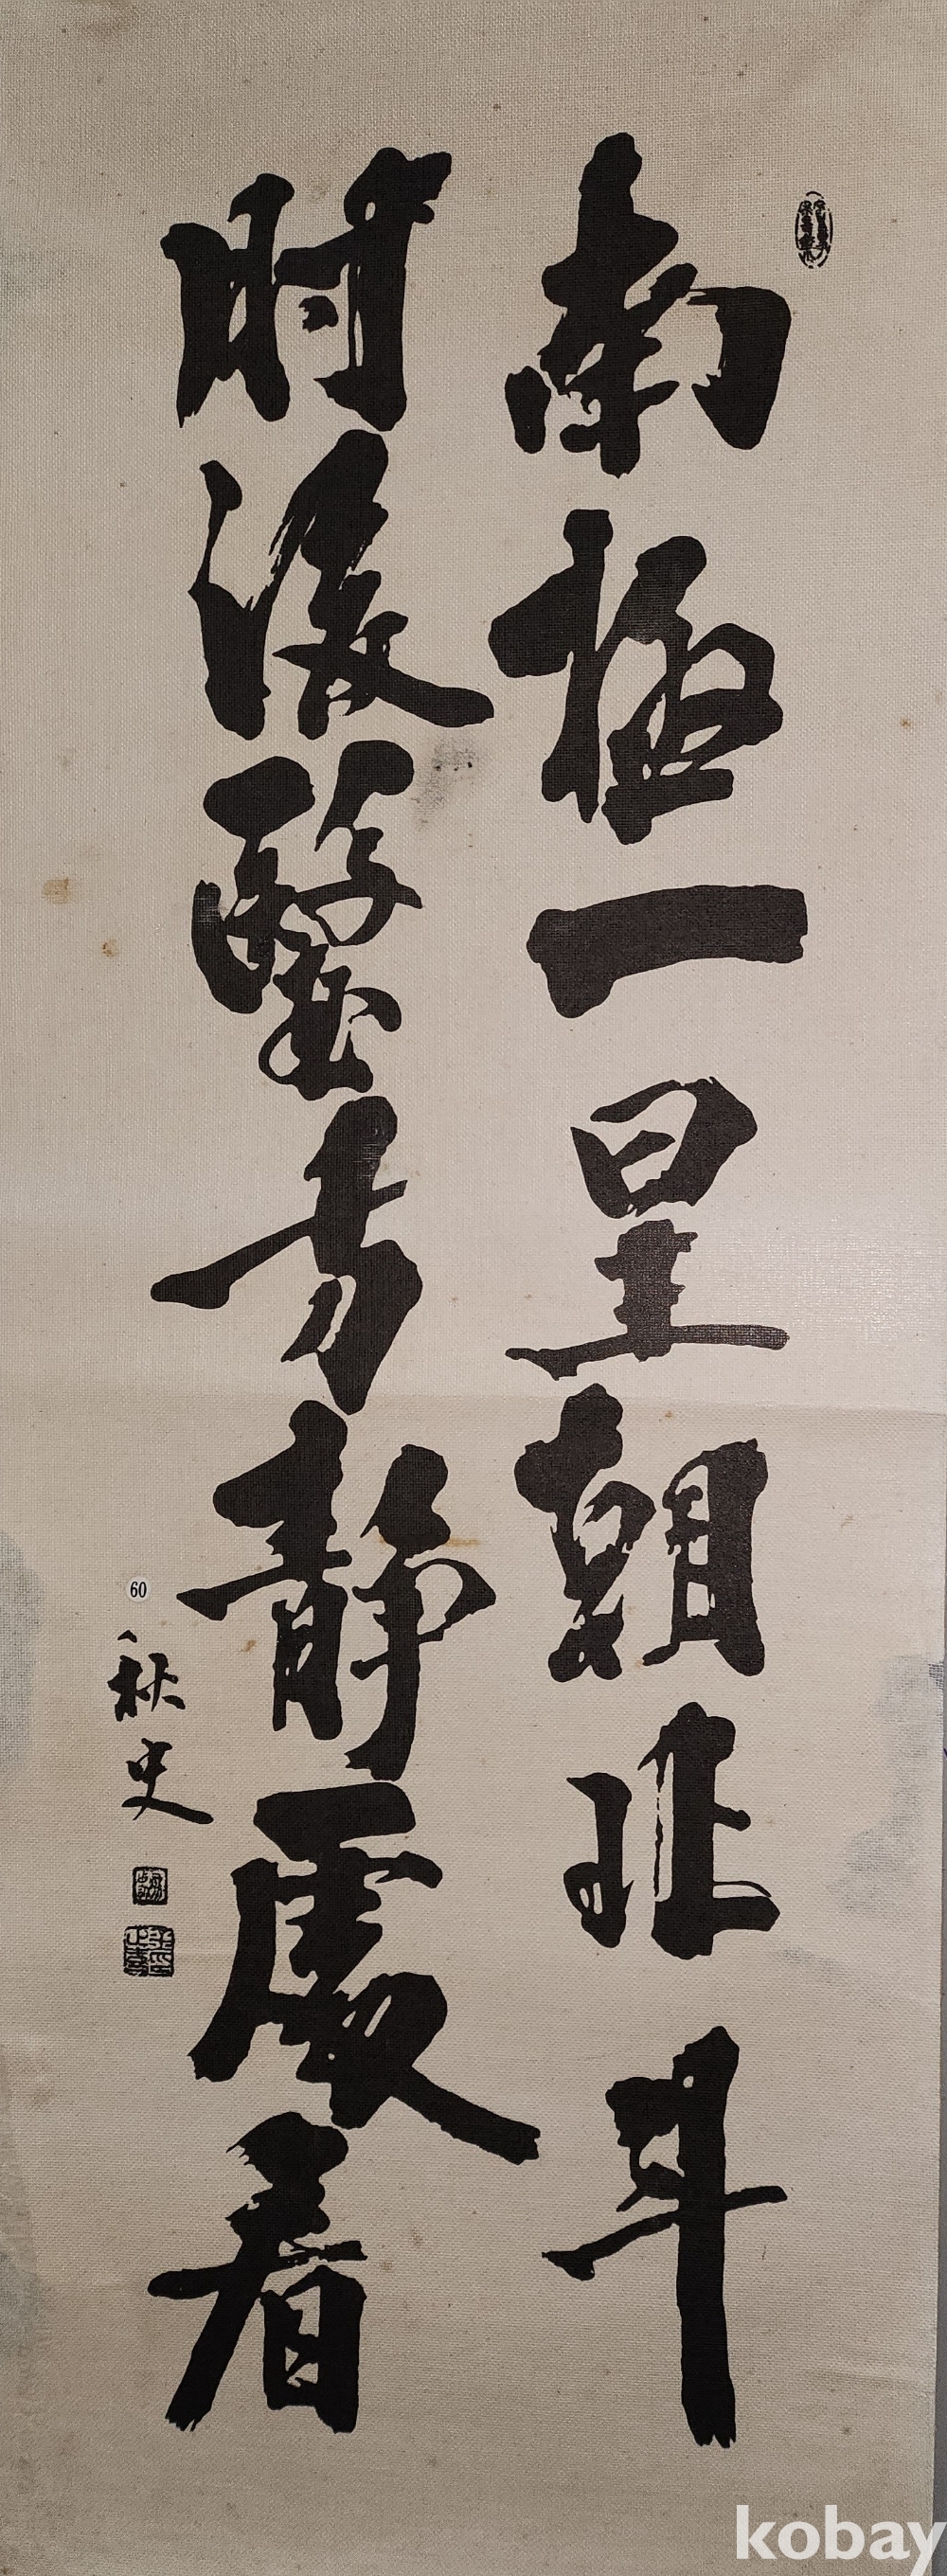 南極一星朝北斗
肘後醫方靜處看
秋史
60
kobay